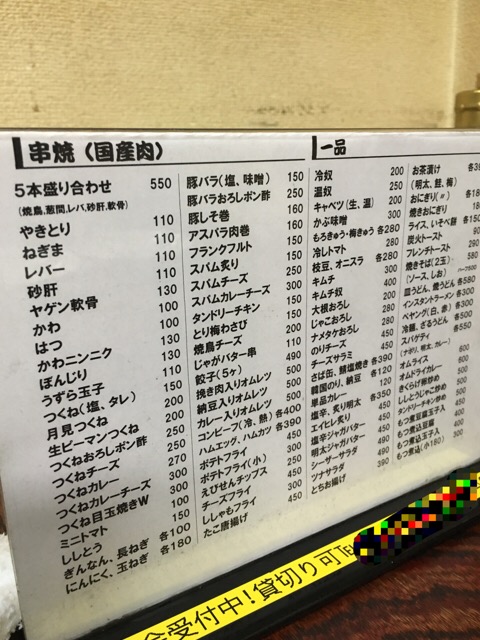 串焼(国産肉)
5本盛り合わせ 550
(焼鳥,葱間,レバ,砂肝,軟骨)
やきとり 110
ねぎま 110
レバー 110
砂肝 110
ヤゲン軟骨 130
かわ 100
はつ 100
かわニンニク 130
ぼんじり 110
うずら玉子 110
つくね(塩、タレ) 150
月見つくね 200
生ピーマンつくね 200
つくねおろしポン酢 250
つくねチーズ 270
つくねカレー 300
つくねカレーチーズ
つくね目玉焼きW
ミニトマト 150
ししとう 100
ぎんなん、長ねぎ 各100
にんにく、玉ねぎ 各180
豚バラ(塩、味噌) 150
豚バラおろしポン酢 250
豚しそ巻 150
アスパラ肉巻 150
フランクフルト 150
スパム炙り 250
スパムチーズ 250
スパムカレーチーズ 300
タンドリーチキン 150
とり梅わさび 150
焼鳥チーズ 200
じゃがバター串
餃子(5ヶ)
挽き肉入りオムレツ
納豆入りオムレツ
カレー入りオムレツ
コンビーフ(冷、熱) 各400
ハムエッグ、ハムカツ 各390
ポテトフライ
ポテトフライ(小) 250
えびせんチップス
チーズフライ
ししゃもフライ
たこ唐揚げ 450
一品
冷奴 200
温奴 250
キャベツ(生、温) 200
かぶ味噌 300
もろきゅう・梅きゅう 各280
冷しトマト 280
枝豆、オニスラ 各280
キムチ 400
キムチ奴
大根おろし
じゃこおろし 280
ナメケおろし
のりチーズ
チーズサラミ
さば缶、鯖塩焼き 各390
韓国のり、納豆 各120
単品カレー
塩辛、炙り明太 各350
エイヒレ炙り 450
塩辛ジャガバター 450
明太ジャガバター 490
シーザーサラダ
ツナサラダ
とちお揚げ 390
お茶漬け
(明太、鮭、梅)
おにぎり(〃)
焼きおにぎり
ライス、いそべ餅
炭火トースト
フレンチトースト
焼きそば(2玉)
(ソース、しお)
皿うどん、焼うどん 各580
インスタントラーメン 各300
ペヤング(白、赤) 各300
冷麺、ざるうどん 各500
スパゲティ 各550
(ナポリ、明太、カレー)
オムライス 600
オムドライカレー
きくらげ卵炒め
ししとうじゃこ炒め
タンドリーチキン炒め
もつ煮豆腐玉子入
もつ煮玉子入
もつ煮込(小180) 300
会受付中!貸切り可TEL